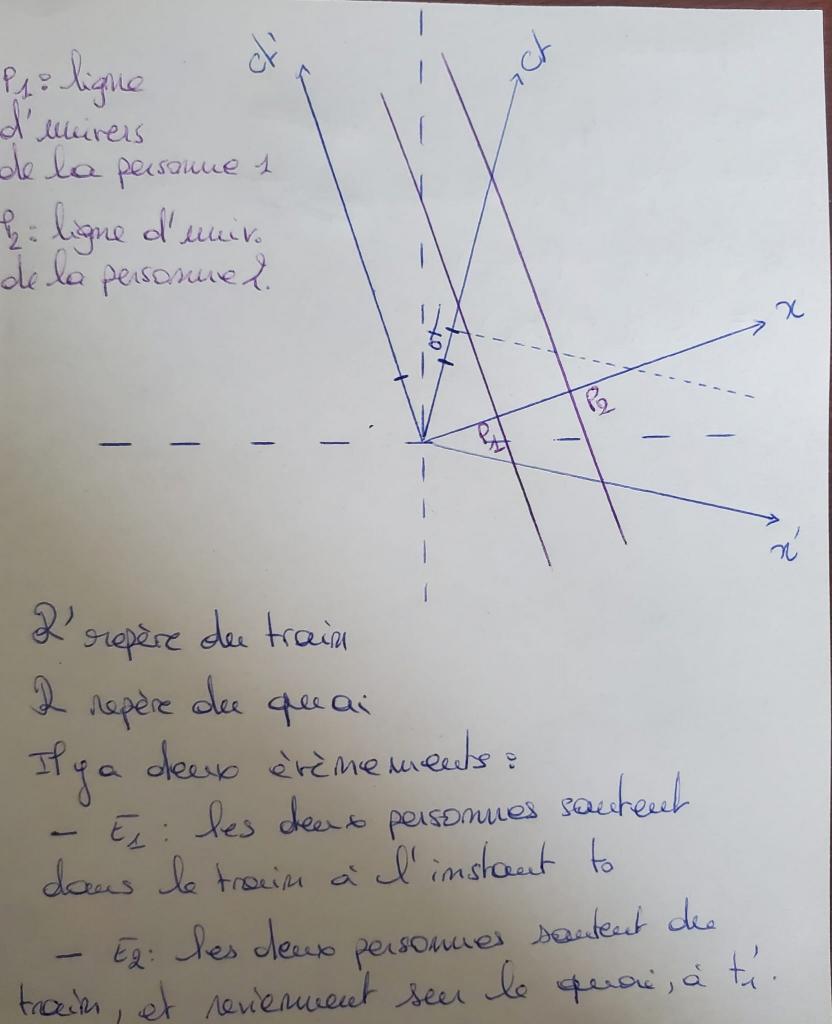 P1: ligne
d'univers
de la personne 1
P2: ligne d'univ.
de la personne 2.
ct'
ct
x
x'
P1
P2
R' repère du train
R repère du quai
Il y a deux évènements :
- E1 : les deux personnes sautent
dans le train à l'instant to
- E2: les deux personnes sautent du
train, et reviennent sur le quai, à t1'.